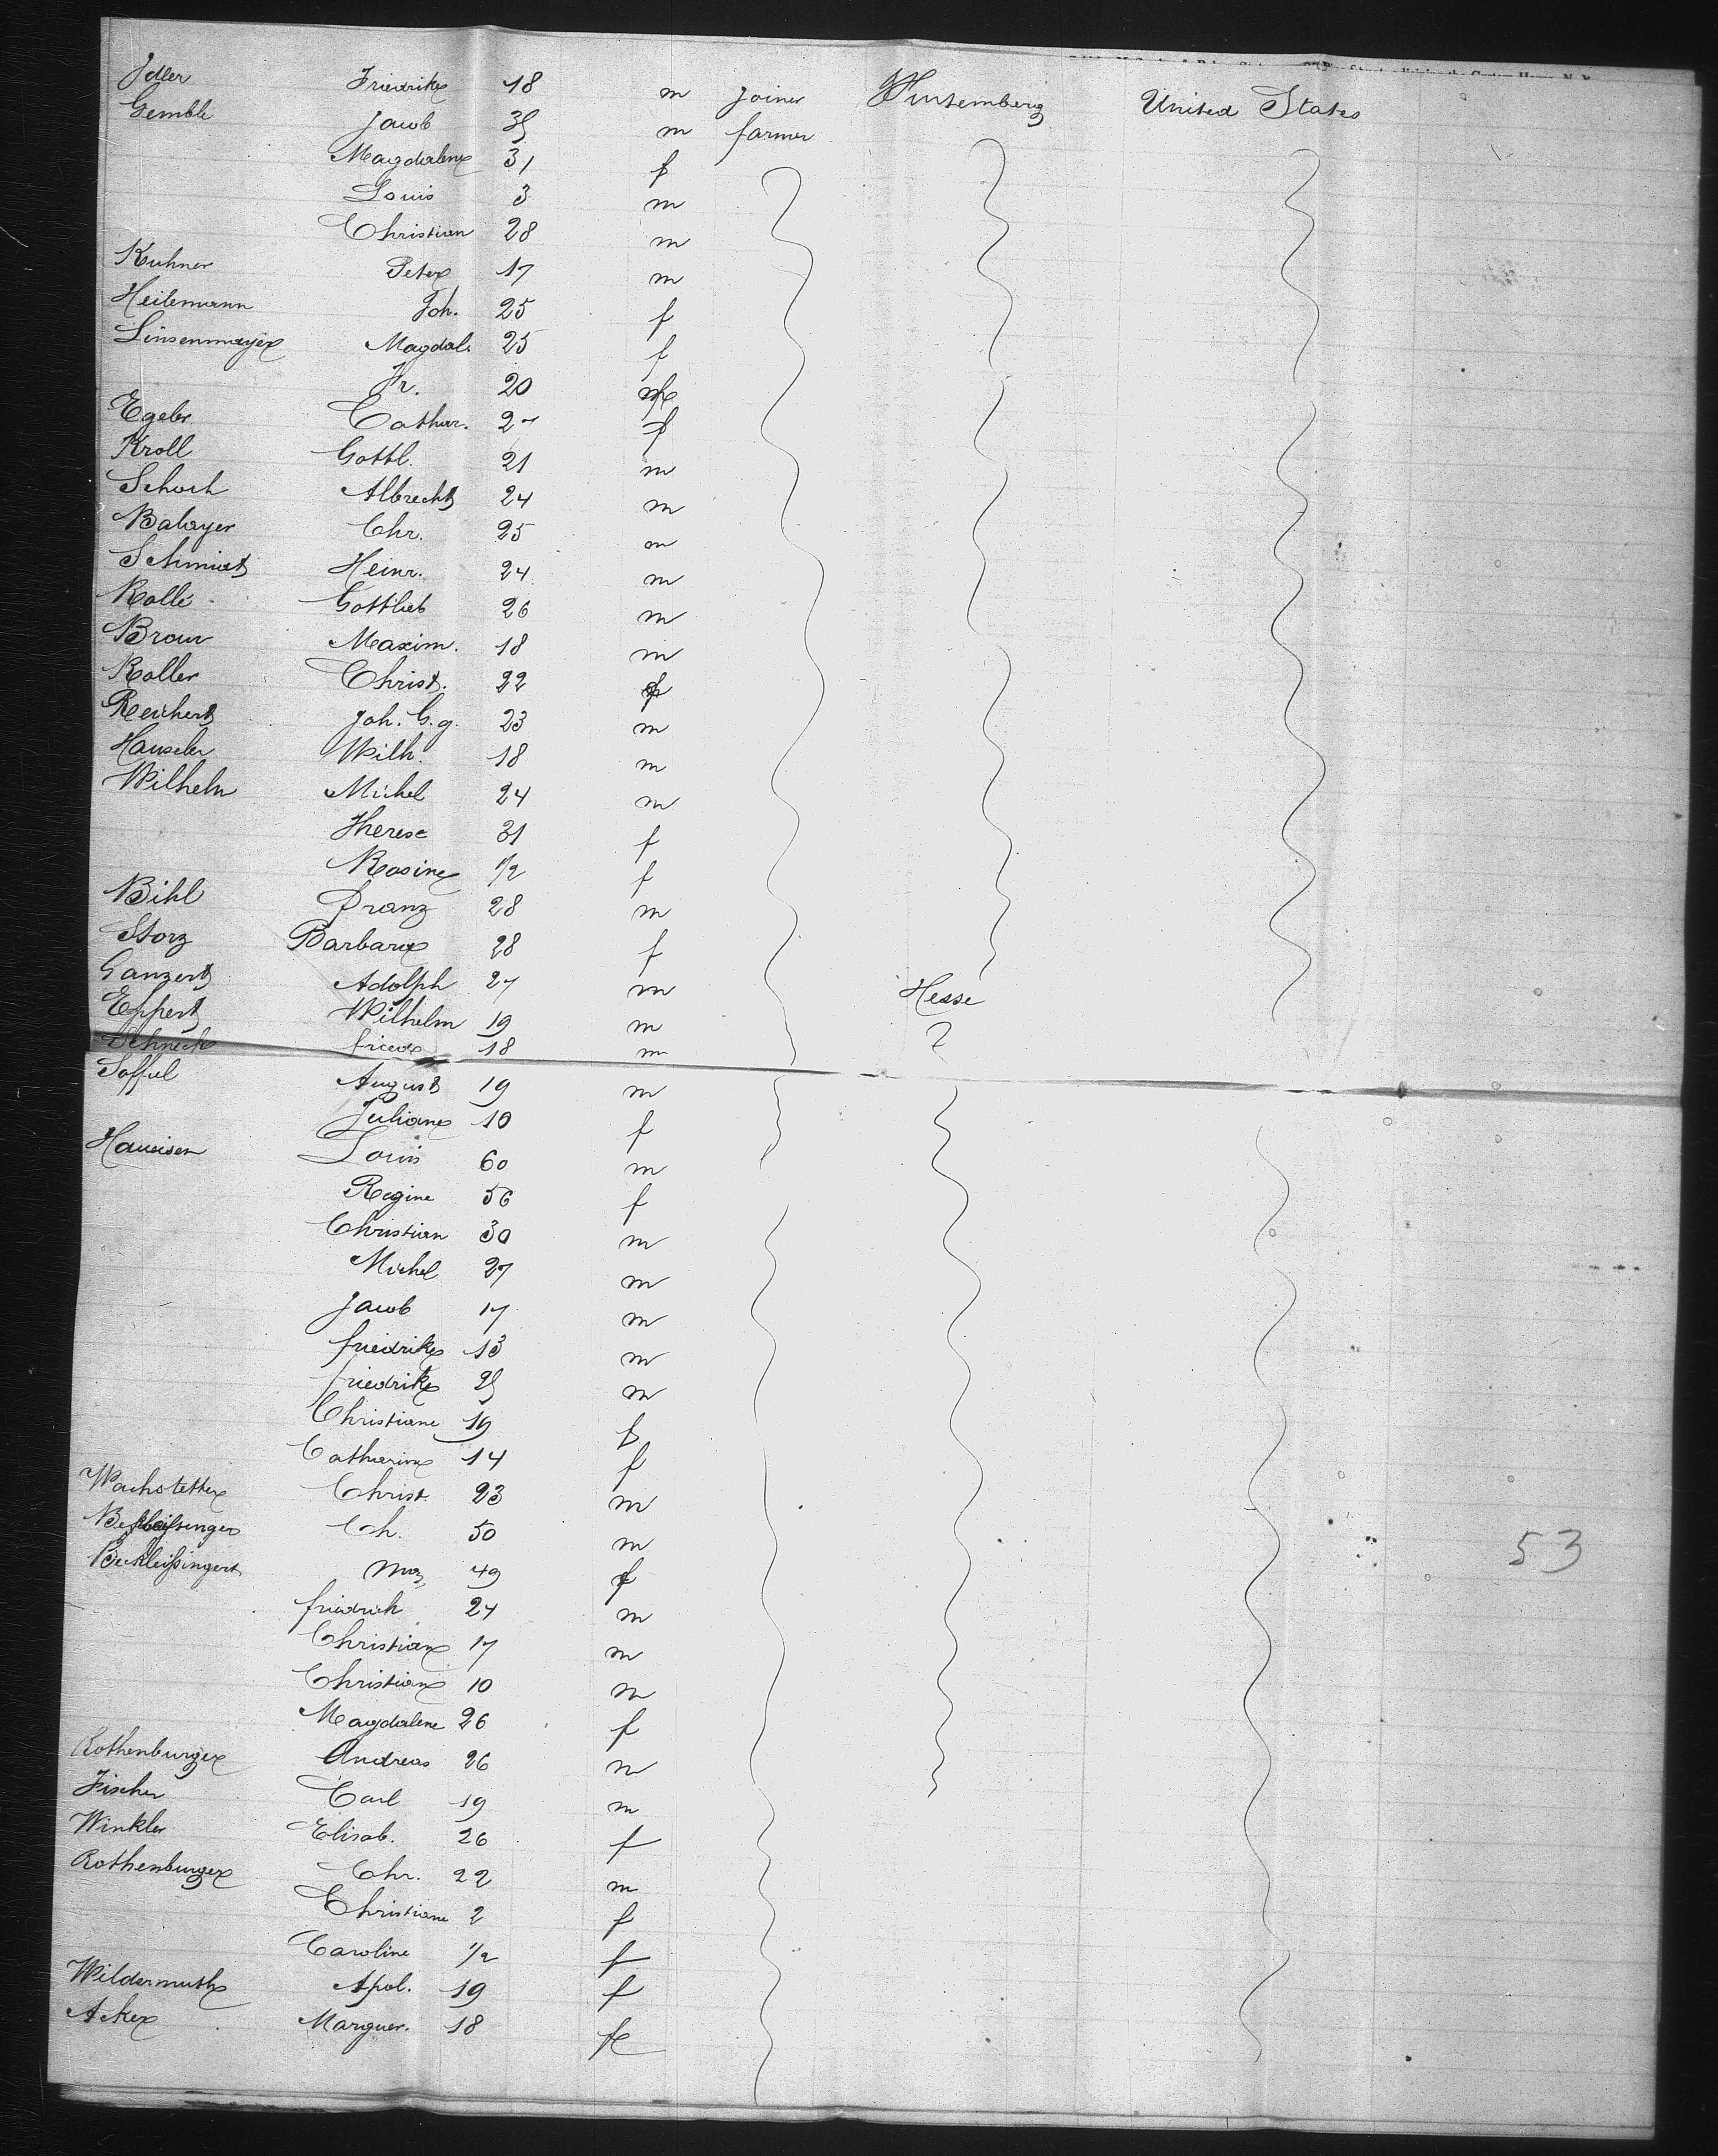 Idler Friedrike 18 m joiner Wurtemberg United States
Gemble Jacob 35 m farmer
Magdalena 31 f
Louis 3 m
Christian 28 m
Kuhner Peter 17 m
Heilemann Joh. 25 f
Linsenmayer Magdal. 25 f
Fr. 20
Egeler Cathar. 27 f
Kroll Gottl. 21 m
Schoch Albrecht 24 m
Balayer Chr. 25 m
Schmidt Heinr. 24 m
Rolle Gottlieb 26 m
Braun Maxim. 18 m
Roller Christ. 22 f
Reichert Joh. G. g. 23 m
Hauseler Wilh. 18 m
Wilhelm Michel 24 m
Therese 31 f
Rosine 1/2 f
Bihl Franz 28 m
Storz Barbara 28 f
Ganzert Adolph 27 m Hesse
Eppert Wilhelm 19 m
Schneck friedr 18 m
Soffel August 19 m
Juliane 10 f
Haueisen Louis 60 m
Regine 56 f
Christian 30 m
Michel 27 m
Jacob 17 m
friedrike 13 m
friedrike 25 m
Christiane 19 f
Catharine 14 f
Wachstetter Christ. 23 m
Ch. 50 m
Beckleißinger 49 f
friedrich 24 m
Christian 17 m
Christian 10 m
53
Magdalene 26 f
Rothenburger Andreas 26 m
Fischer Carl 19 m
Winkler Elisab. 26 f
Rothenburger Chr. 22 m
Christiane 2 f
Caroline 1/2 f
Wildermuth Apol. 19 f
Aker Marguer. 18 fe